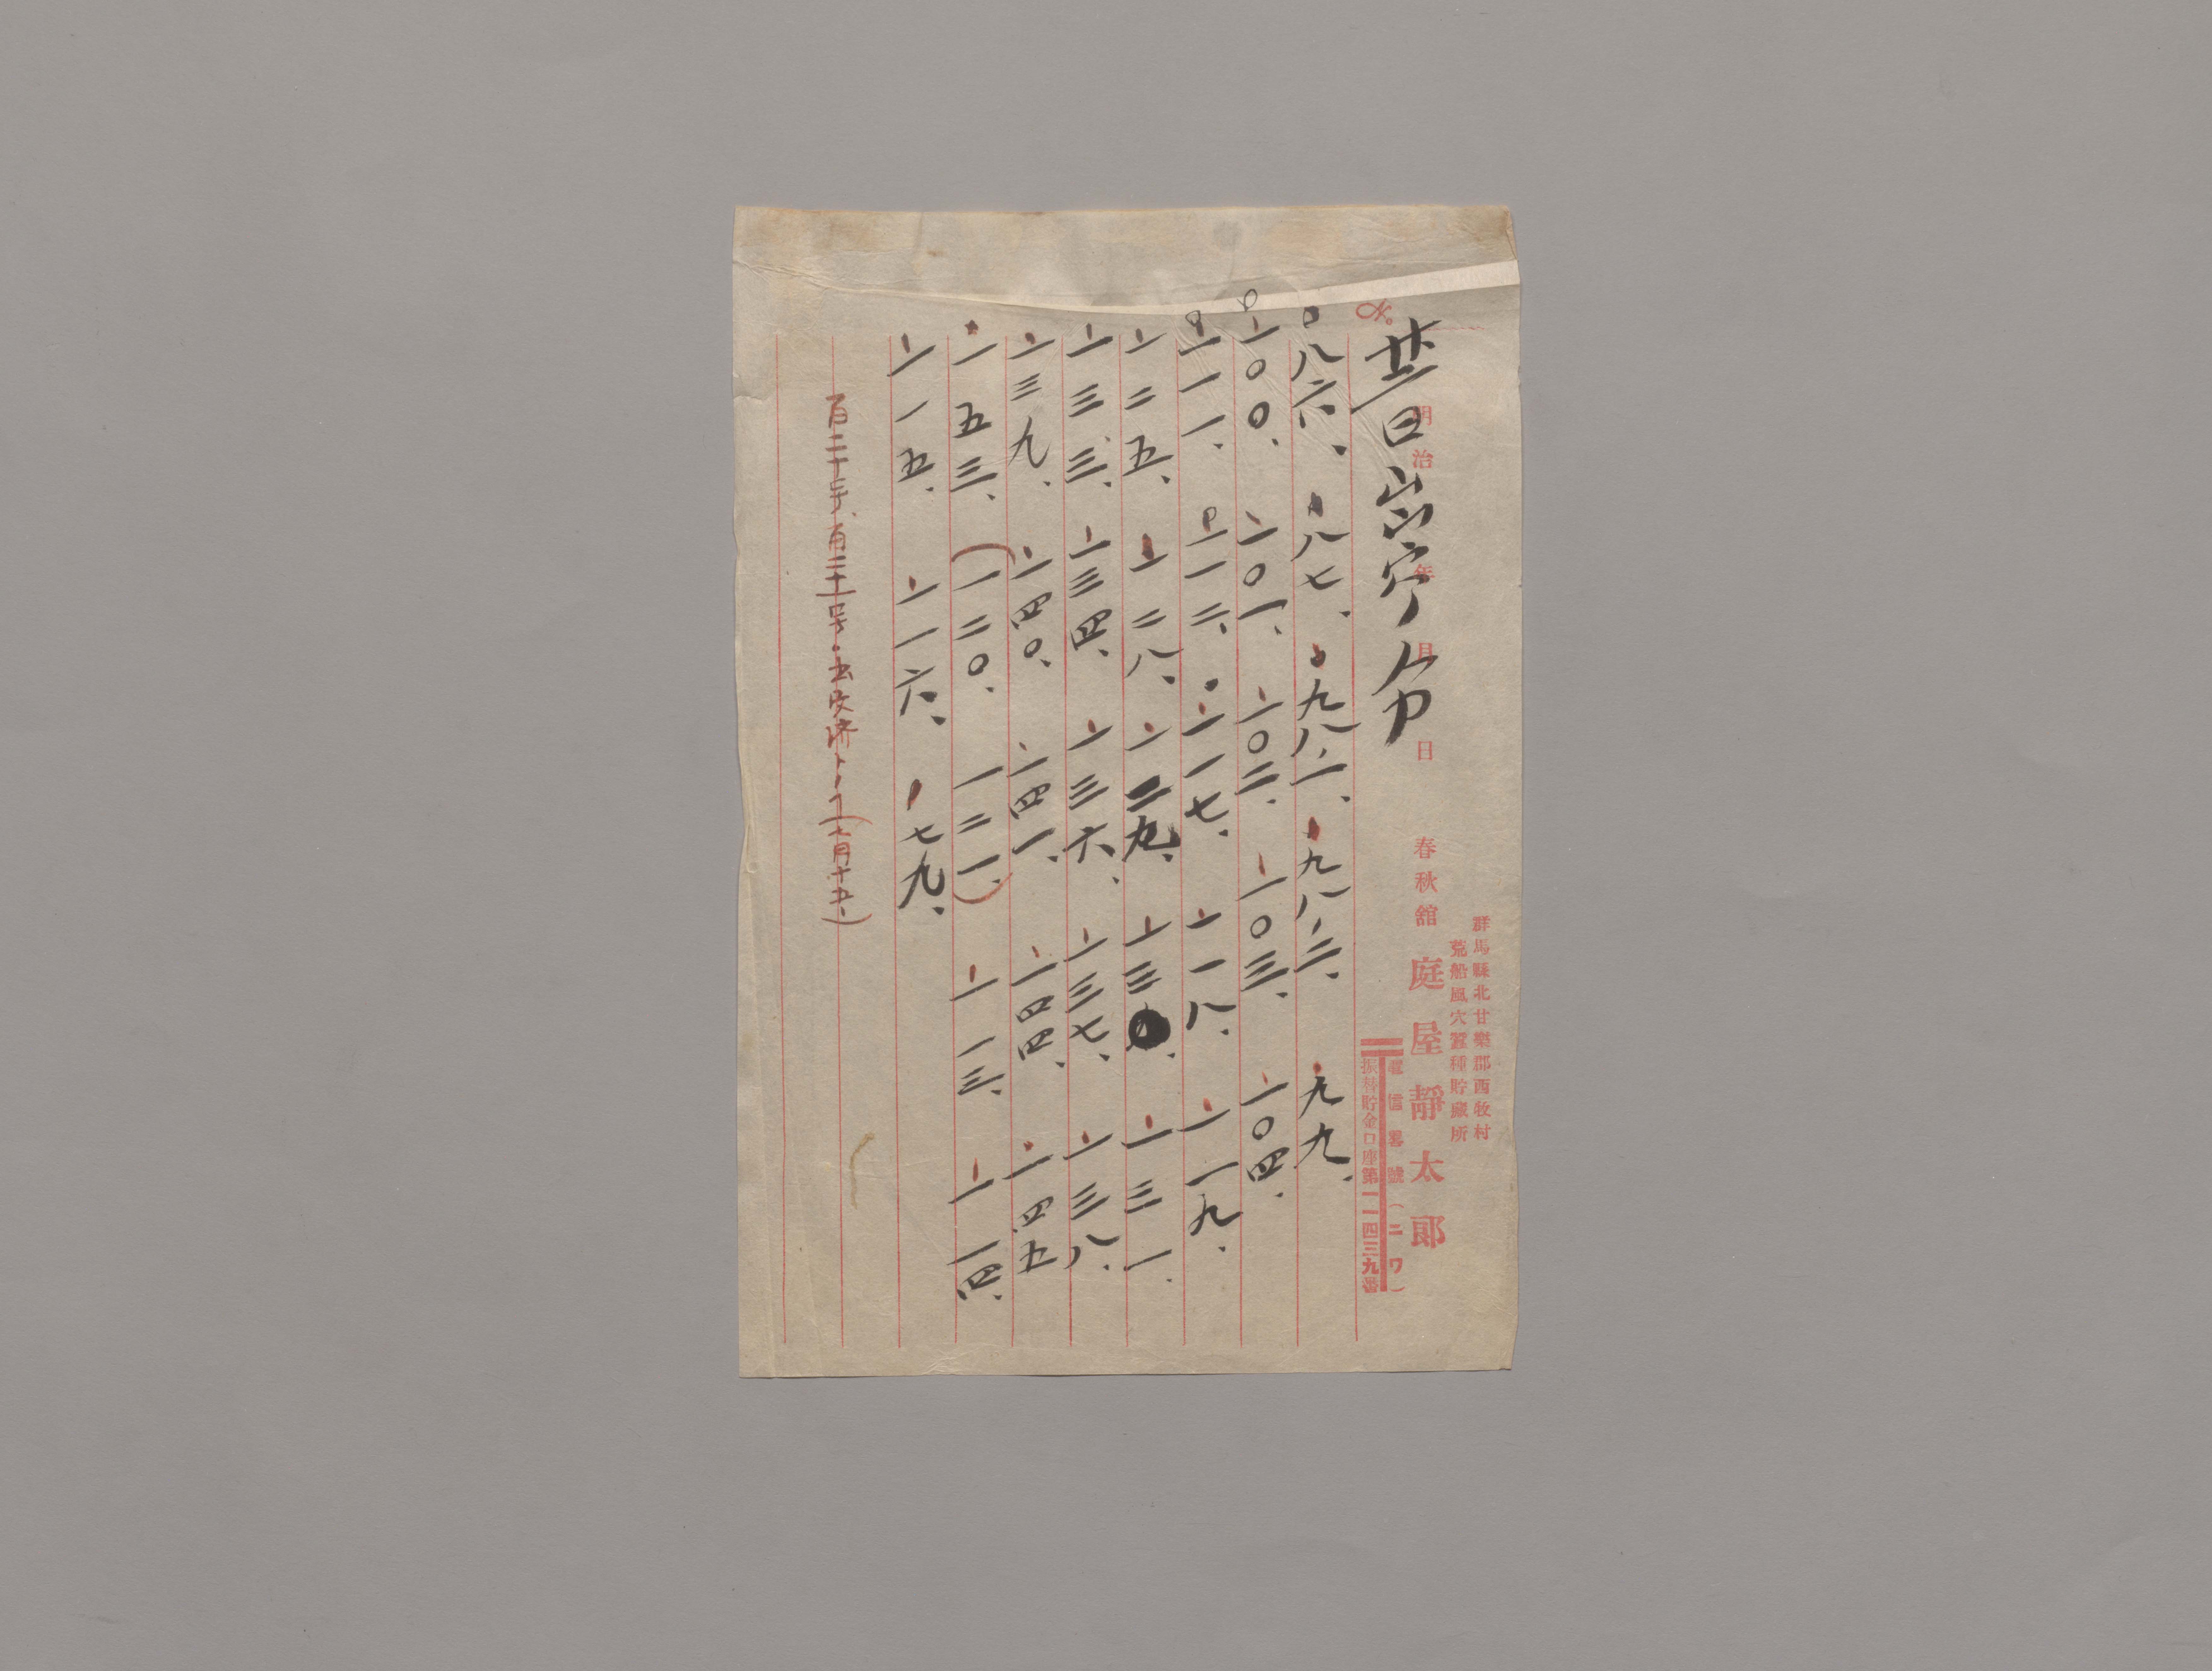 群馬縣北甘樂郡西牧村
荒船風穴蠶種貯藏所
春秋舘 庭屋靜太郎
電信畧號(ニワ)
振替貯金口座第一一四三九番
No.
明治 年 月 日
廿一日出穴分
八六、八七、九八ノ一、九八ノ二、九九、
一〇〇、一〇一、一〇二、一〇三、一〇四、
一一一、一一二、一一七、一一八、一一九、
一二五、一二八、一二九、一三〇、一三一、
一三三、一三四、一三六、一三七、一三八、
一三九、一四〇、一四一、一四四、一四五
一五三、(一二〇、一二一、)一一三、一一四、
一一五、一一六、七九、
百二十号、百二十一号